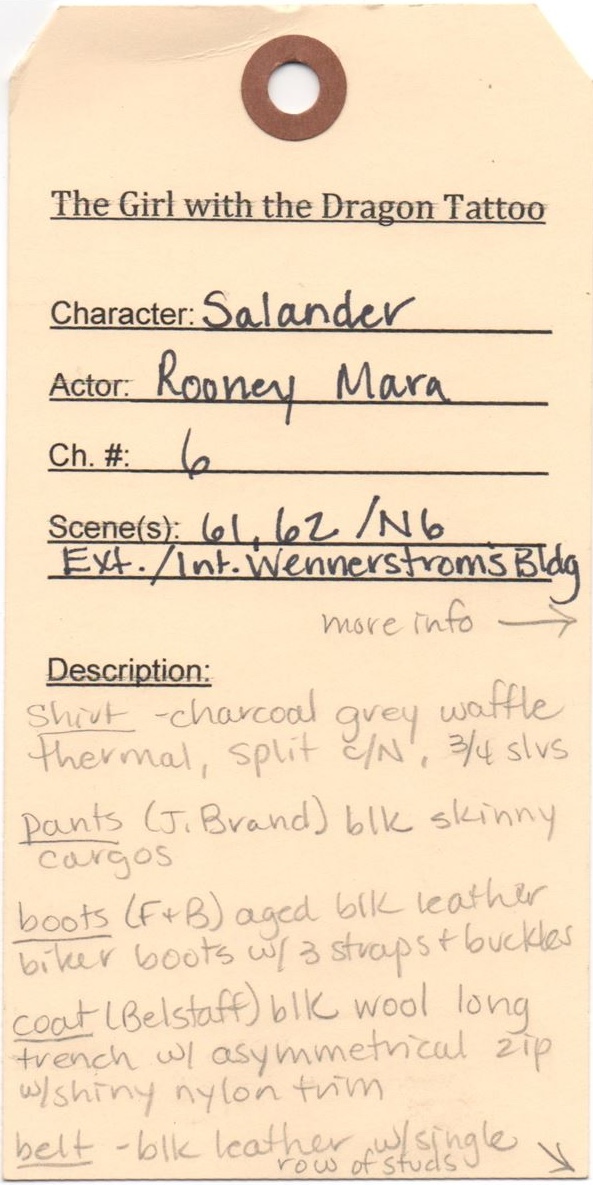 The Girl with the Dragon Tattoo
Character: Salander
Actor: Rooney Mara
Ch. #: 6
Scene(s): 61, 62 /N6
Ext./Int. Wennerstrom's Bldg
more info →
Description:
shirt - charcoal grey waffle
thermal, split c/N, 3/4 slvs
pants (J. Brand) blk skinny
cargos
boots (F+B) aged blk leather
biker boots w/ 3 straps + buckles
coat (Belstaff) blk wool long
trench w/ asymmetrical zip
w/shiny nylon trim
belt - blk leather w/single
row of studs ↘